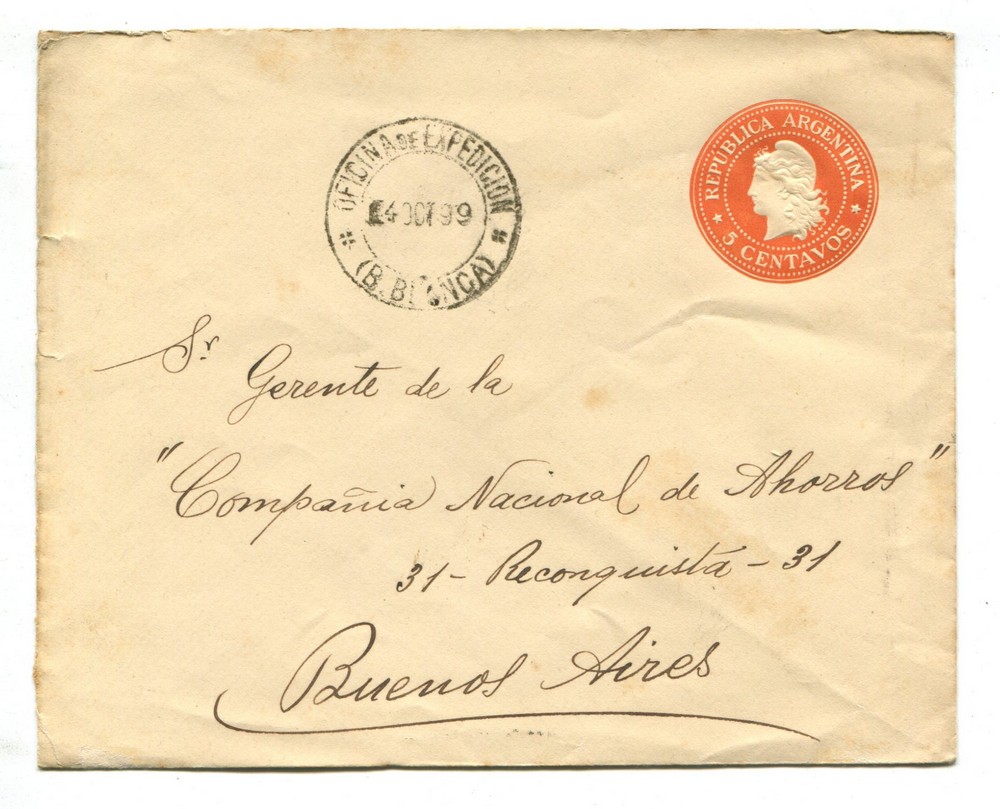 OFICINA DE EXPEDICION
4 OCT 99
(B. BLANCA)
REPUBLICA ARGENTINA
5 CENTAVOS
Sr
Gerente de la
"Compañia Nacional de Ahorros"
31 - Reconquista - 31
Buenos Aires